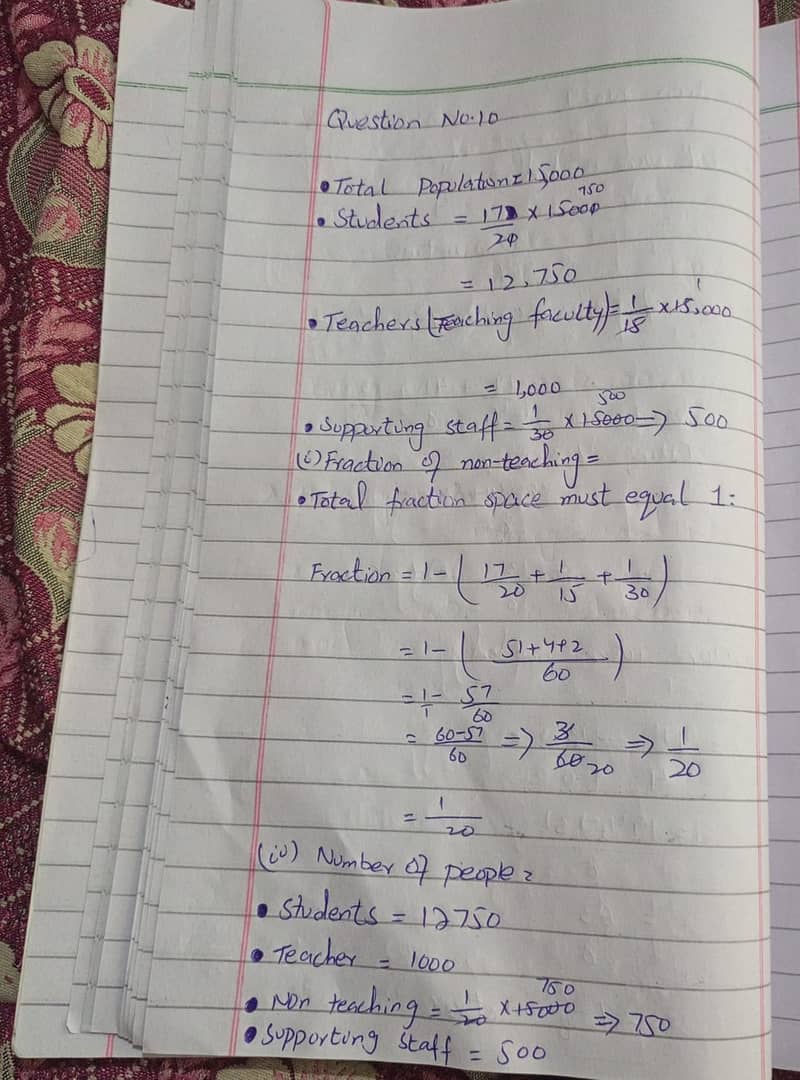 Question No.10
• Total Population = 15,000
• Students = 17/20 × 15000 750
= 12,750
• Teachers (Teaching faculty) = 1/15 × 15,000 1
= 1,000
• Supporting staff = 1/30 × 15000 500 => 500
(i) Fraction of non-teaching =
• Total fraction space must equal 1:
Fraction = 1 - ( 17/20 + 1/15 + 1/30 )
= 1 - ( 51+4+2 / 60 )
= 1/1 - 57/60
= 60-57/60 => 3/60 20 => 1/20
= 1/20
(ii) Number of people =
• Students = 12750
• Teacher = 1000
• Non teaching = 1/20 × 15000 750 => 750
• Supporting staff = 500